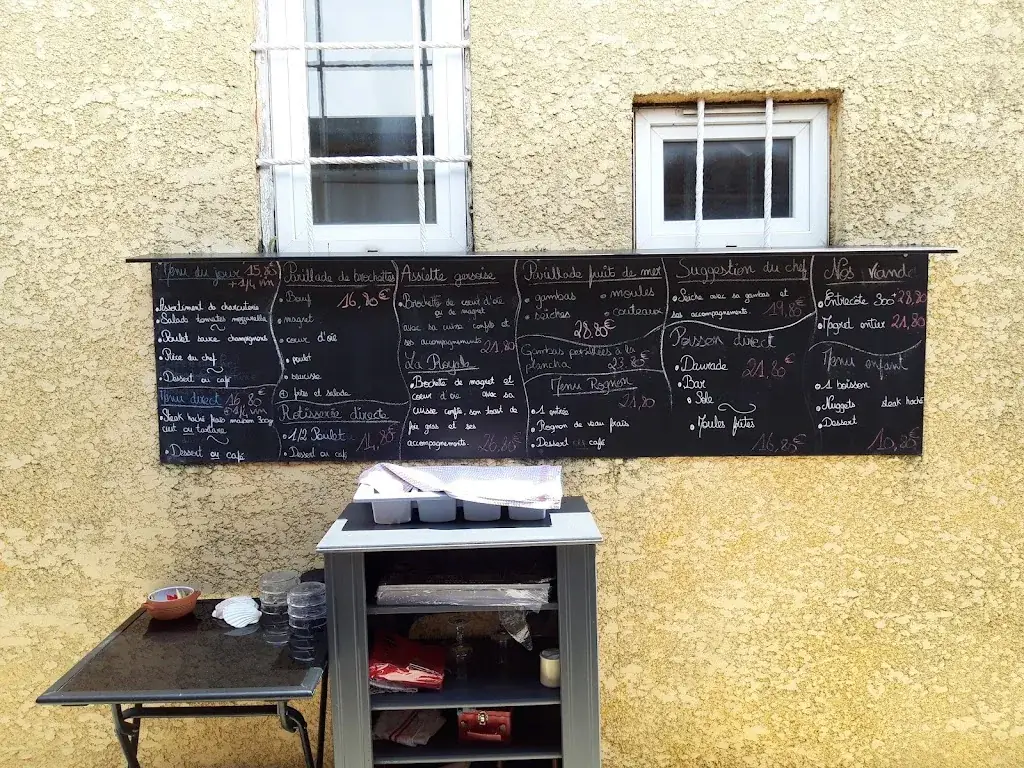 Menu du jour 15,80
+ 1/4 vin
Assortiment de charcuterie
Salade tomates mozzarella
Poulet sauce champignons
Pièce du chef
Dessert ou café
Menu direct 16,80
+ 1/4 vin
Steak haché frais maison 300g
cuit ou tartare
Dessert ou café
Parillade de brochettes
Bœuf 16,80€
magret
cœur d'oie
poulet
saucisse
frites et salade
Rotisserie directe
1/2 Poulet 14,80€
Dessert ou café
Assiette gersoise
Brochette de cœur d'oie
ou de magret
avec sa cuisse confite et
ses accompagnements 21,80
La Royale
Brochette de magret et
cœur d'oie avec sa
cuisse confite, son toast de
foie gras et ses
accompagnements. 26,80€
Parillade fruits de mer
gambas moules
seiches couteaux
28,80€
Gambas persillées à la
plancha 23,80€
Menu Rognon
21,80
1 entrée
Rognon de veau frais
Dessert café
Suggestion du chef
Seiche avec sa gambas et
ses accompagnements 19,80€
Poisson direct
Daurade 21,80€
Bar
Sole
Moules frites
16,80€
Nos viandes
Entrecôte 300g 28,80
Magret entier 21,80
Menu enfant
1 boisson
Nuggets steak haché
Dessert
10,80€